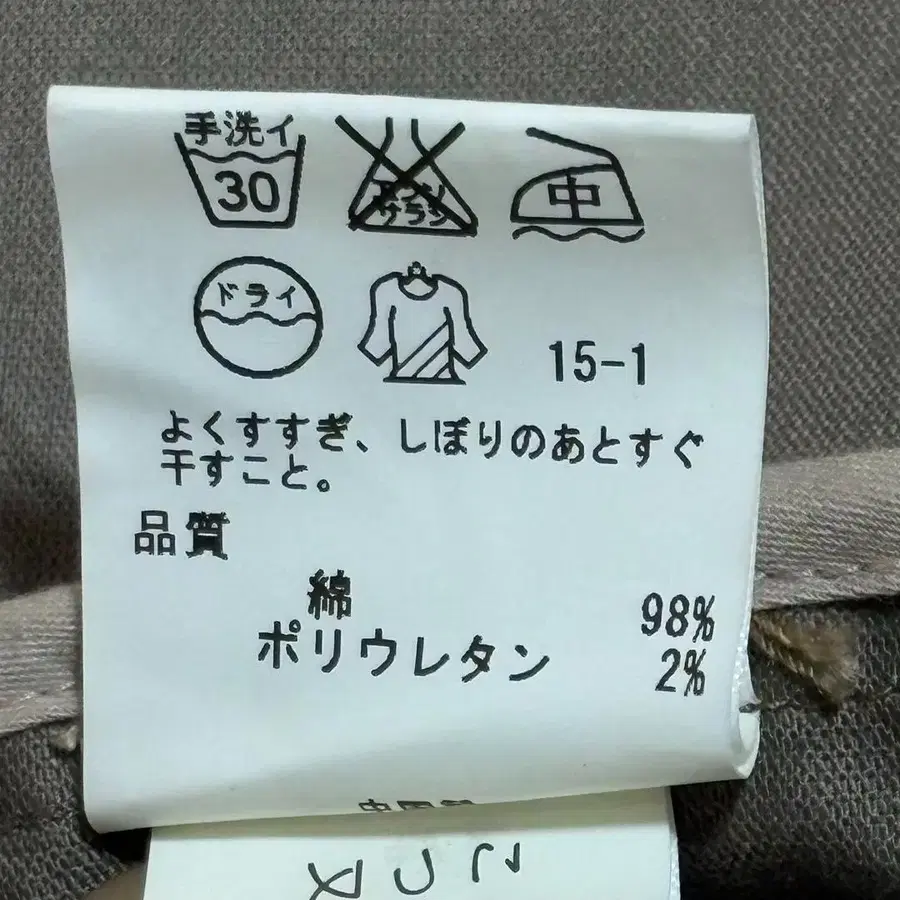 手洗イ
30
エンソ
サラシ
中
ドライ
15-1
よくすすぎ、しぼりのあとすぐ
干すこと。
品質
綿 98%
ポリウレタン 2%